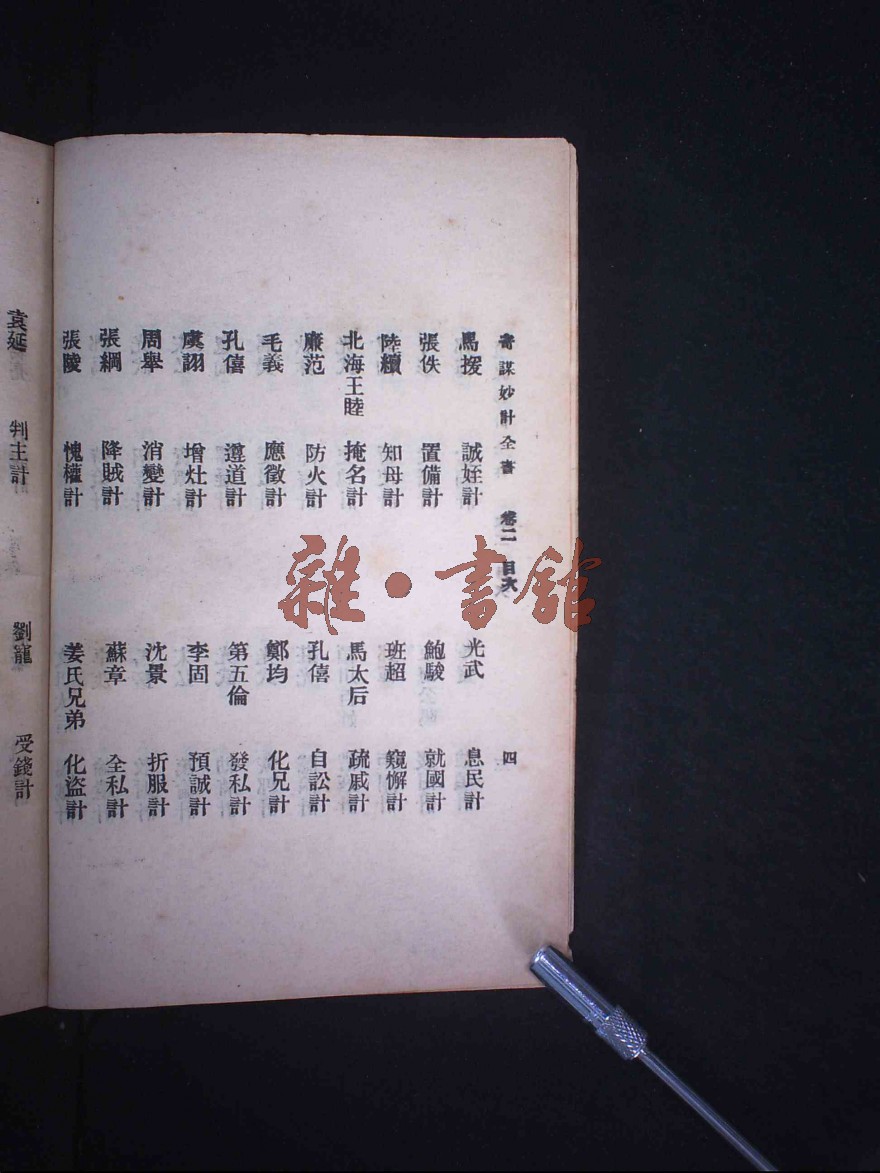 奇謀妙計全書 卷二 目次 四
馬援 誡姪計 光武 息民計
張佚 置備計 鮑駿 就國計
陸續 知母計 班超 窺懈計
北海王睦 掩名計 馬太后 疏戚計
廉范 防火計 孔僖 自訟計
毛義 應徵計 鄭均 化兄計
孔僖 遵道計 第五倫 發私計
虞詡 增灶計 李固 預誡計
周舉 消變計 沈景 折服計
張綱 降賊計 蘇章 全私計
張陵 愧權計 姜氏兄弟 化盜計
袁延 判主計 劉寵 受錢計
雜·書館